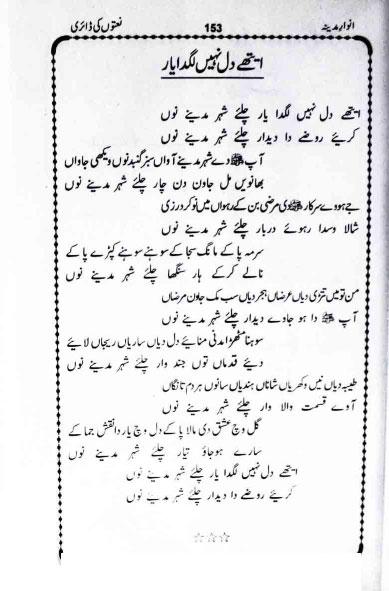 انوار مدینہ 153 نعتوں کی ڈائری
ایتھے دل نہیں لگدا یار
ایتھے دل نہیں لگدا یار چلئے شہر مدینے نوں
کریئے روضے دا دیدار چلئے شہر مدینے نوں
آپ ﷺ دے شہر مدینے آواں سبز گنبد نوں ویکھی جاواں
بھانویں مل جاون دن چار چلئے شہر مدینے نوں
جے ہووے سرکار ﷺ دی مرضی بن کے رہواں میں نوکر درزی
شالا وسدا رہوئے دربار چلئے شہر مدینے نوں
سرمہ پا کے مانگ سجا کے سوہنے سوہنے کپڑے پا کے
نالے کر کے ہار سنگھا چلئے شہر مدینے نوں
من تو میں تتڑی دیاں عرضاں ہجر دیاں سب مک جاون مرضاں
آپ ﷺ دا ہو جاوے دیدار چلئے شہر مدینے نوں
سوہنا مٹھڑا مدنی منائیے دل دیاں ساریاں ریجاں لائیے
دیئے قدماں توں جند وار چلئے شہر مدینے نوں
طیبہ دیاں نیں وکھریاں شاناں ہندیاں سانوں ہر دم تانگاں
آوے قسمت والا وار چلئے شہر مدینے نوں
گل وچ عشق دی مالا پا کے دل وچ یار دا نقش جما کے
سارے ہو جاؤ تیار چلئے شہر مدینے نوں
ایتھے دل نہیں لگدا یار چلئے شہر مدینے نوں
کریئے روضے دا دیدار چلئے شہر مدینے نوں
☆☆☆